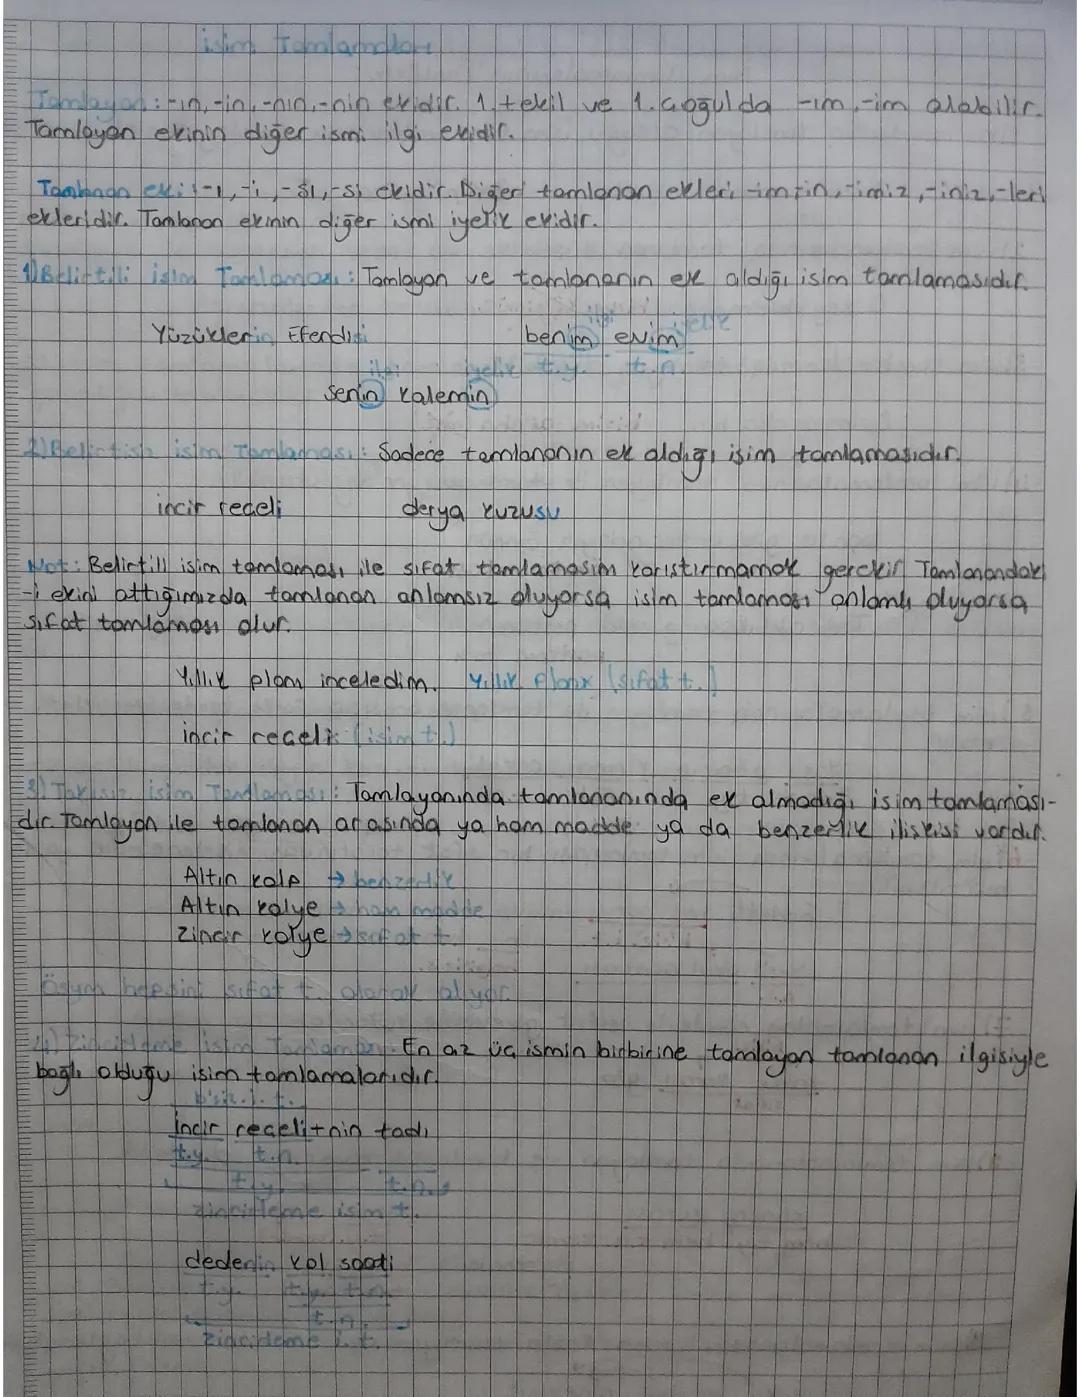 isim Tamlamaları
Tamlayan: -ın, -in, -nın, -nin ekidir. 1. tekil ve 1. çoğulda -ım, -im alabilir.
Tamlayan ekinin diğer ismi ilgi ekidir.
Tamlanan eki: -ı, -i, -sı, -si ekidir. Diğer tamlanan ekleri -im, -in, -imiz, -iniz, -leri
ekleridir. Tamlanan ekinin diğer ismi iyelik ekidir.
1) Belirtili isim Tamlaması: Tamlayan ve tamlananın ek aldığı isim tamlamasıdır.
ilgi iyelik
Yüzüklerin Efendisi benim evim
ilgi iyelik t.y. t.n.
senin kalemin
2) Belirtisiz isim Tamlaması: Sadece tamlananın ek aldığı isim tamlamasıdır.
incir reçeli derya kuzusu
Not: Belirtili isim tamlaması ile sıfat tamlamasını karıştırmamak gerekir Tamlanandaki
-i ekini attığımızda tamlanan anlamsız oluyorsa isim tamlaması anlamlı oluyorsa
sıfat tamlaması olur.
Yıllık planı inceledim. Yıllık (sıfat t.)
incir (isim t.)
3) Takısız isim Tamlaması: Tamlayanında tamlananında ek almadığı isim tamlaması-
dır. Tamlayan ile tamlanan arasında ya ham madde ya da benzerlik ilişkisi vardır.
Altın kalp → benzerlik
Altın kolye → ham madde
Zincir kolye → sıfat t.
Ösym hepsini sıfat t. olarak alıyor.
4) Zincirleme isim Tamlaması: En az üç ismin birbirine tamlayan tamlanan ilgisiyle
bağlı olduğu isim tamlamalarıdır.
b'siz. i. t.
İncir reçeli+nin tadı
t.y. t.n.
t.y. t.n.
zincirleme isim t.
dedenin kol saati
t.y. t.y. t.n.
t.n.
zincirleme i. t.